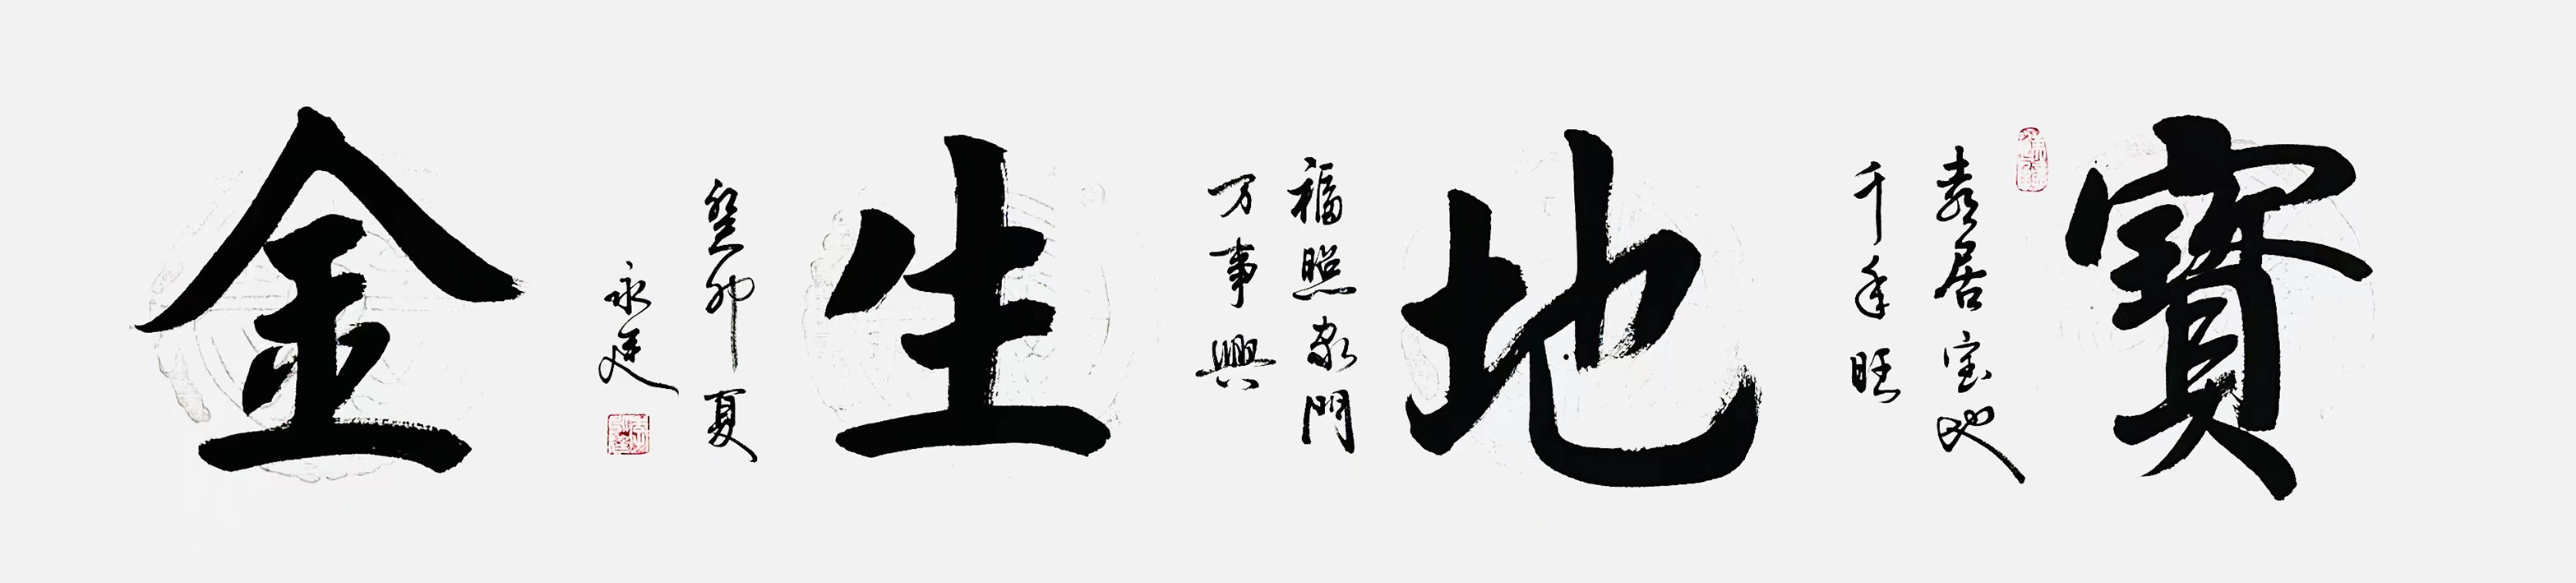 寶
喜居宝地
千年旺
地
福照家門
万事興
生
癸卯夏
永廷
金